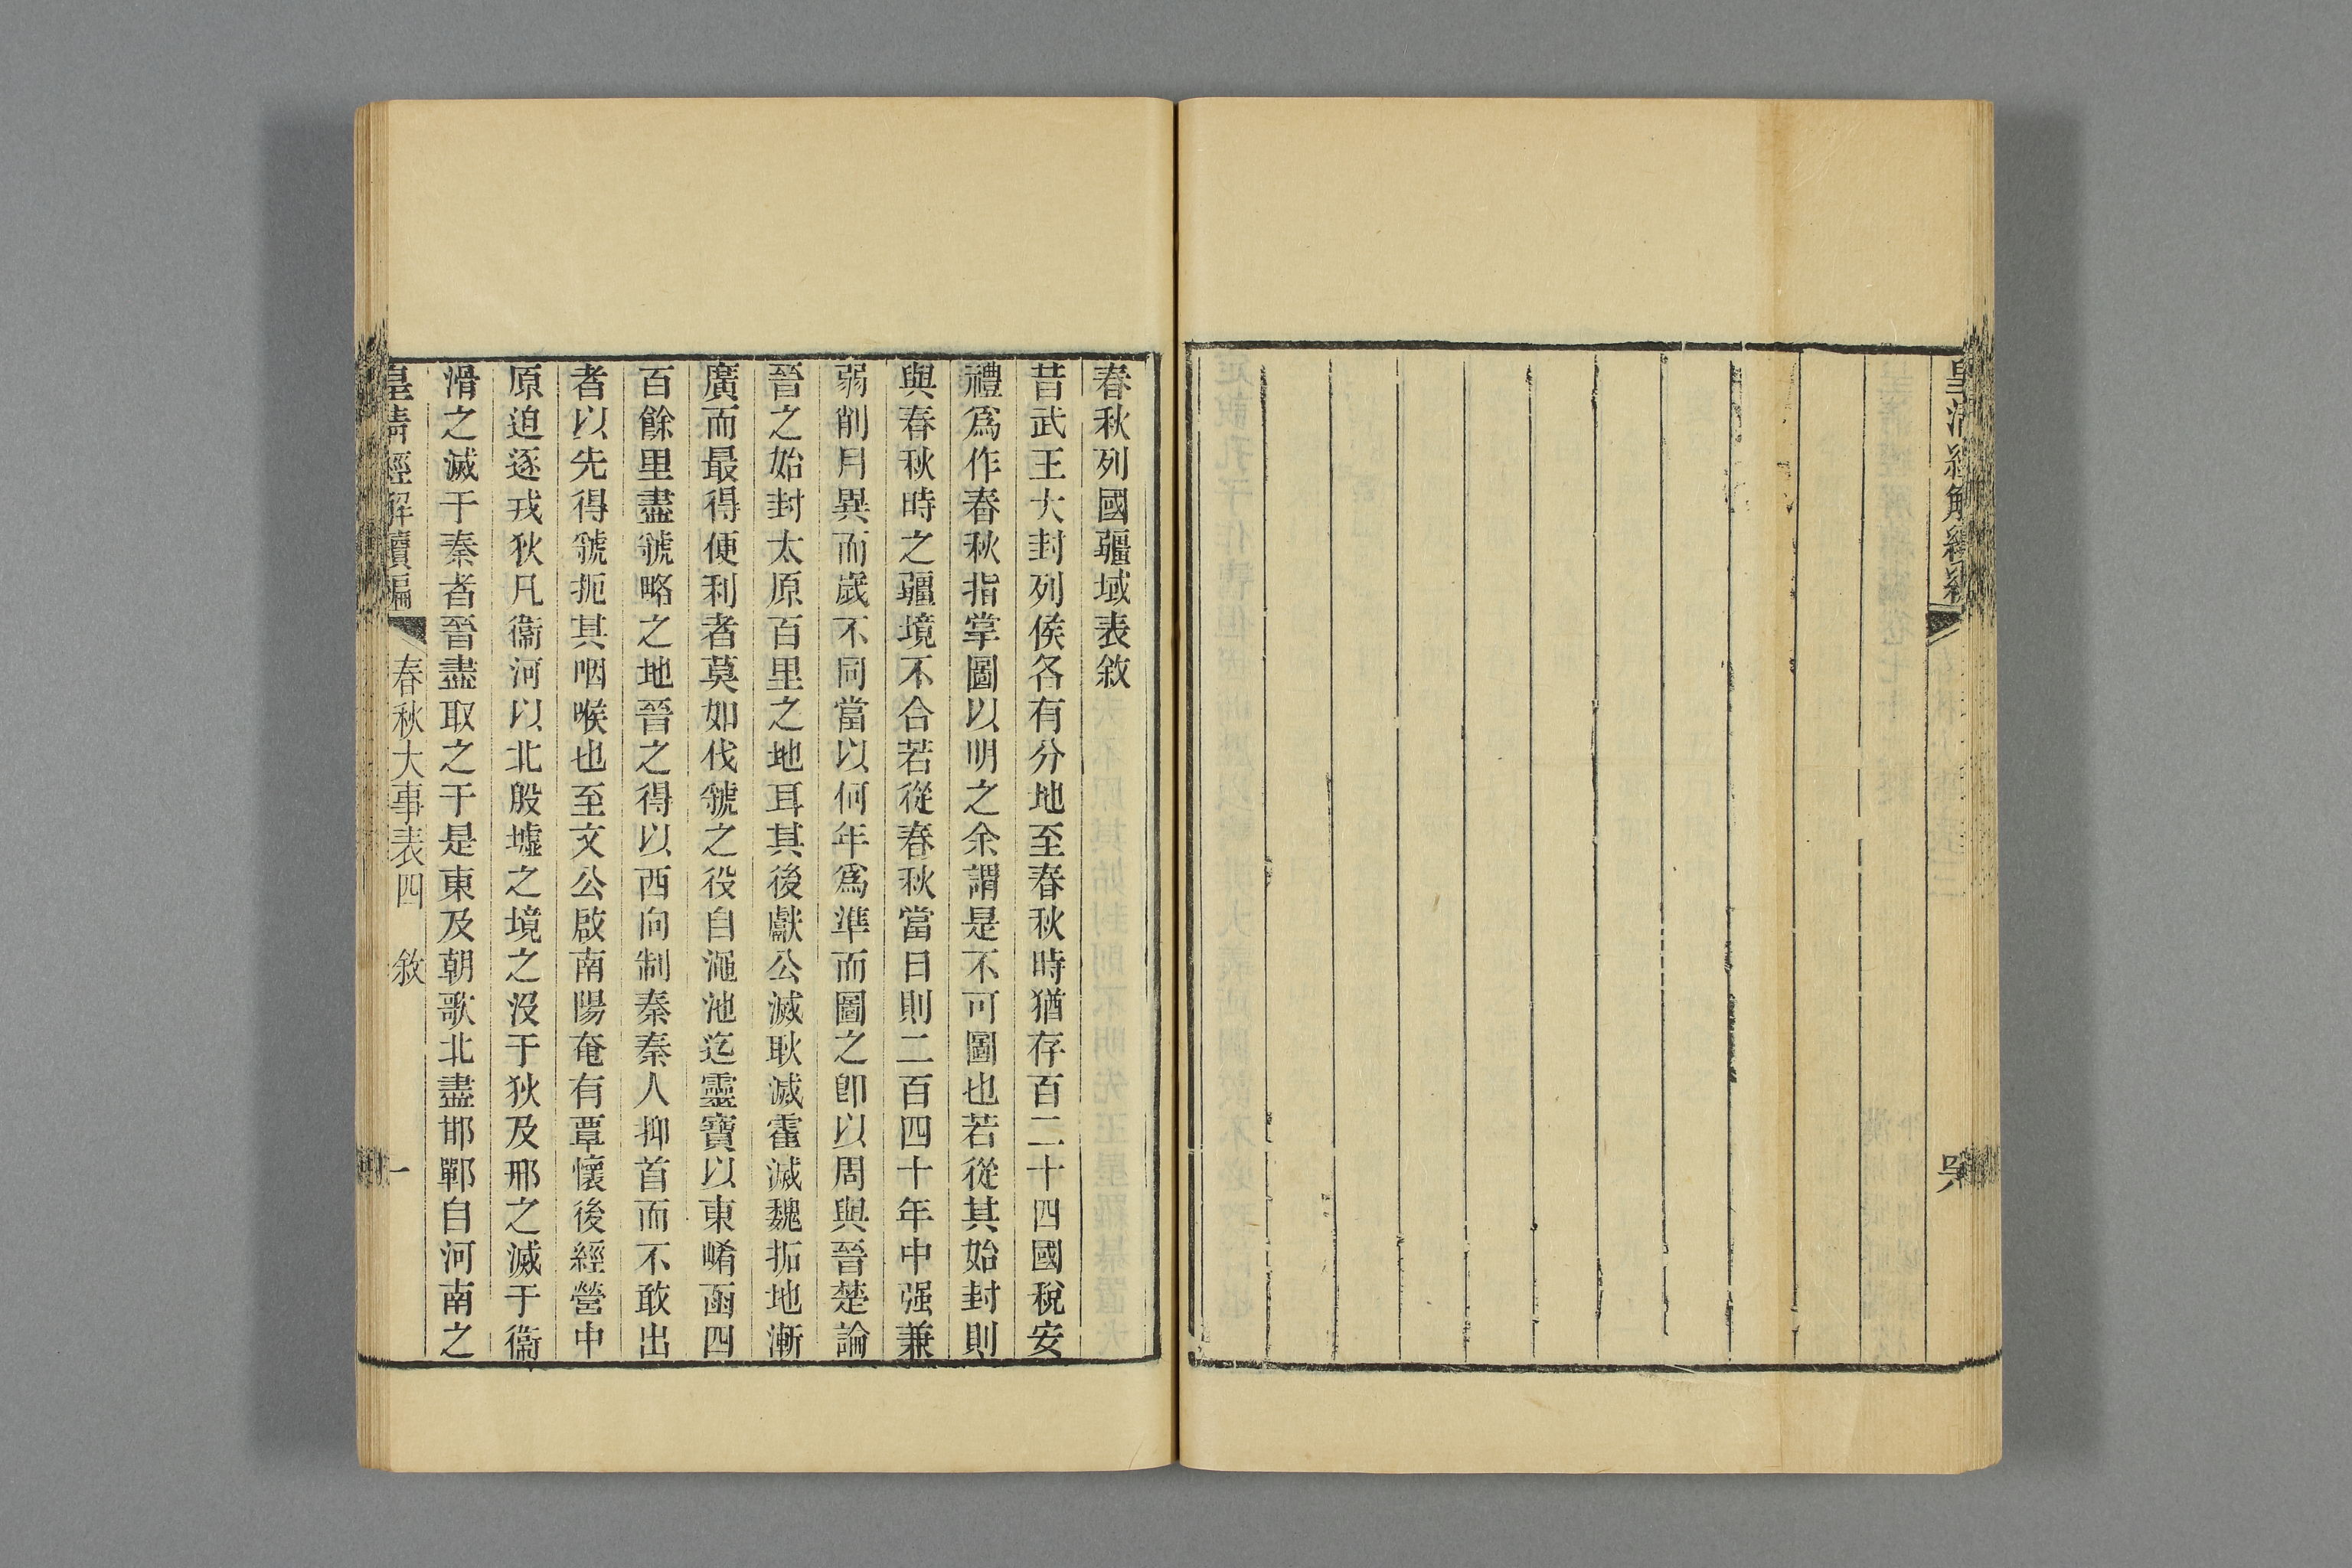 皇清經解續編
春秋列國疆域表敘
昔武王大封列侯各有分地至春秋時猶存百二十四國稅安
禮爲作春秋指掌圖以明之余謂是不可圖也若從其始封則
與春秋時之疆境不合若從春秋當日則二百四十年中强兼
弱削月異而歲不同當以何年爲準而圖之卽以周與晉楚論
晉之始封太原百里之地耳其後獻公滅耿滅霍滅魏拓地漸
廣而最得便利者莫如伐虢之役自澠池迄靈寶以東崤函四
百餘里盡虢略之地晉之得以西向制秦秦人抑首而不敢出
者以先得虢扼其咽喉也至文公啟南陽奄有覃懷後經營中
原迫逐戎狄凡衞河以北殷墟之境之沒于狄及邢之滅于衞
滑之滅于秦者晉盡取之于是東及朝歌北盡邯鄲自河南之
皇清經解續編 春秋大事表四 敘 一